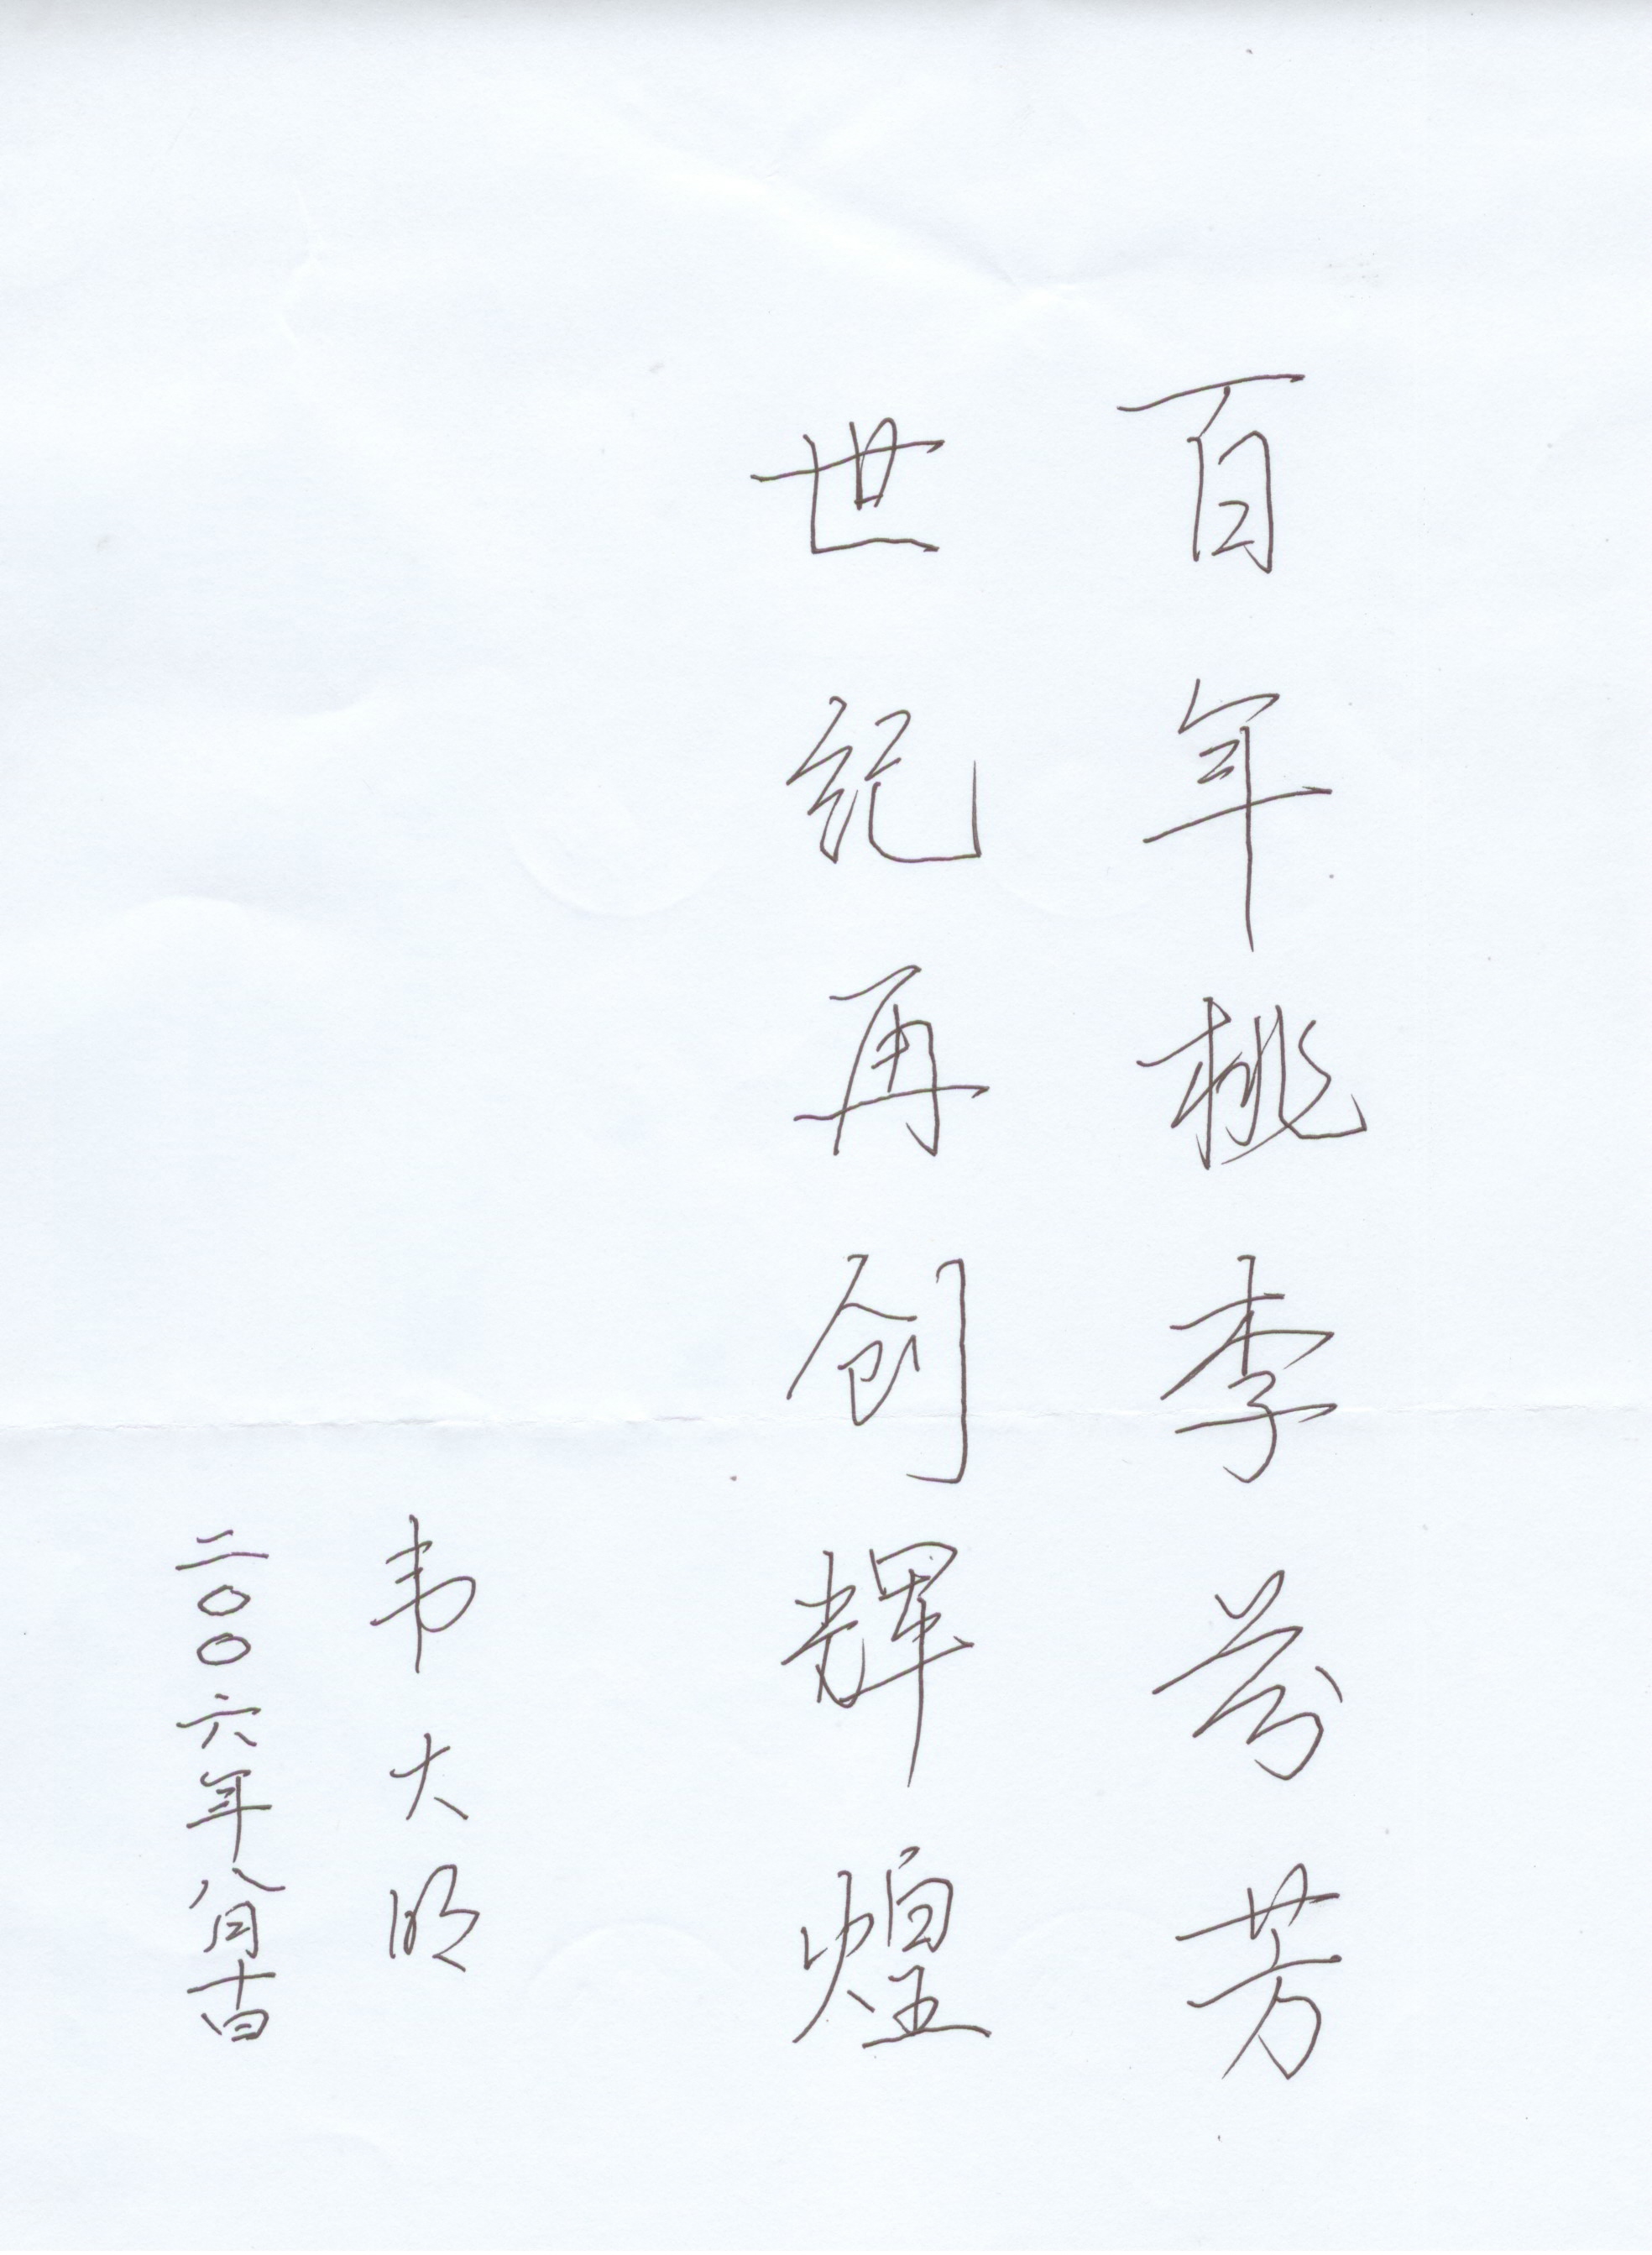 百年桃李芬芳
世纪再创辉煌
韦大明
二〇〇六年八月十日